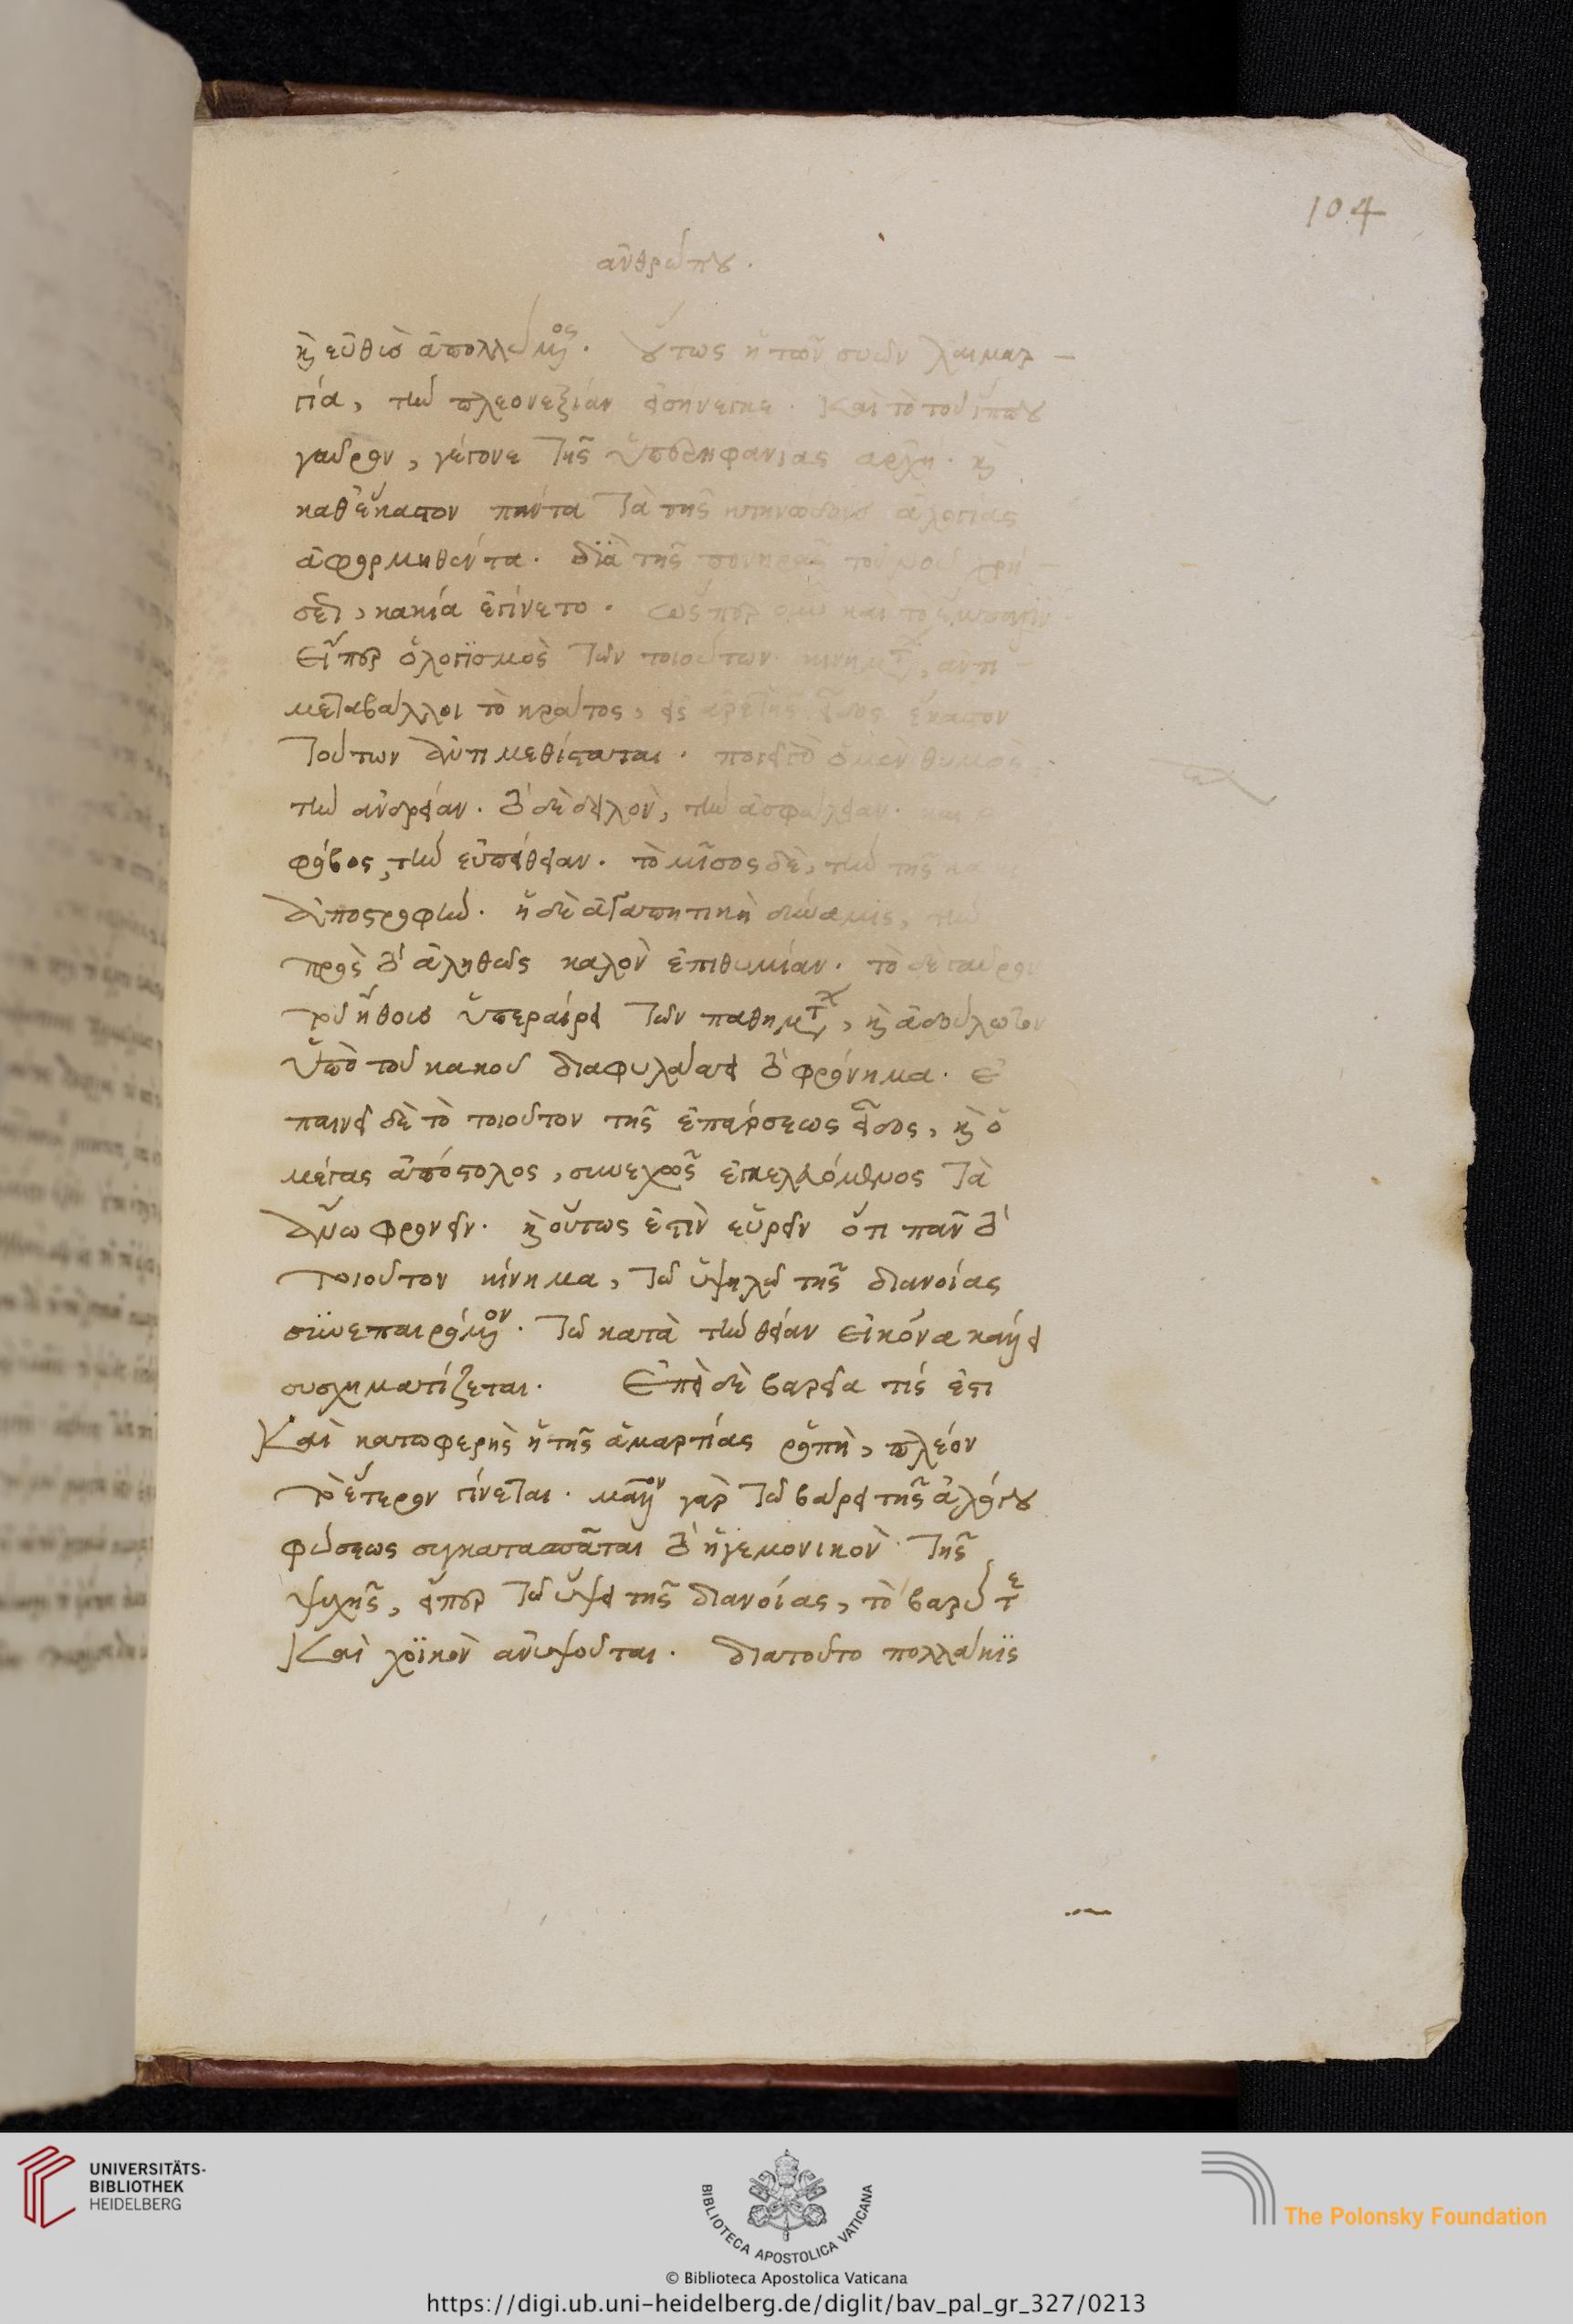 104
ἀνθρώπου.
καὶ εὐθὺς ἀπολλύμενος. οὕτως ἡ τῶν συῶν λαιμαρ-
γία, τὴν πλεονεξίαν εἰσήνεγκε. Καὶ τὸ τοῦ ἵππου
γαῦρον, γέγονε τῆς ὑπερηφανίας ἀρχή. καὶ
καθέκαστον πάντα τὰ τῆς κτηνώδους ἀλογίας
ἀφορμηθέντα. διὰ τῆς πονηρᾶς τοῦ νοῦ χρή
σει, κακία ἐγίνετο. ὥσπερ οὖν καὶ τὸ ἔμπαλιν
Εἴπερ ὁ λογισμὸς τῶν τοιούτων κινημάτων, ἀντι
μεταβάλλοι τὸ κράτος, εἰς ἀρετῆς εἶδος ἕκαστον
τούτων ἀντιμεθίσταται. ποιεῖ τὸ ὁ μὲν θυμὸς
τὴν ἀνδρείαν. τὸ δὲ δειλὸν, τὴν ἀσφάλειαν. καὶ ὁ
φόβος, τὴν εὐπείθειαν. τὸ μῖσος δὲ, τὴν τῆς κα
ἀποστροφήν. ἡ δὲ ἀγαπητικὴ δύναμις, τὴν
πρὸς τὸ ἀληθῶς καλὸν ἐπιθυμίαν. τὸ δὲ γαῦρον
τοῦ ἤθους ὑπεραίρει τῶν παθημάτων, καὶ ἀδούλωτον
ὑπὸ τοῦ κακοῦ διαφυλάττει τὸ φρόνημα. ἐ
παινεῖ δὲ τὸ τοιοῦτον τῆς ἐπάρσεως εἶδος, καὶ ὁ
μέγας ἀπόστολος, συνεχῶς ἐγκελευόμενος τὰ
ἄνω φρονεῖν. καὶ οὕτως ἐστὶν εὑρεῖν ὅτι πᾶν τὸ
τοιοῦτον κίνημα, τῷ ὑψηλῷ τῆς διανοίας
συνεπαιρόμενον. τῷ κατὰ τὴν θείαν εἰκόνα κάλλει
συσχηματίζεται. Ἐπεὶ δὲ βαρεῖα τίς ἐστι
Καὶ κατωφερὴς ἡ τῆς ἁμαρτίας ῥοπὴ, πλέον
τὸ ἕτερον γίνεται. μᾶλλον γὰρ τῷ βάρει τῆς ἀλόγου
φύσεως συγκατασπᾶται τὸ ἡγεμονικὸν τῆς
ψυχῆς, εἴπερ τῷ ὕψει τῆς διανοίας, τὸ βαρύ τε
Καὶ χοϊκὸν ἀνυψοῦται. διατοῦτο πολλάκις
UNIVERSITÄTS-
BIBLIOTHEK
HEIDELBERG
BIBLIOTECA APOSTOLICA VATICANA
The Polonsky Foundation
© Biblioteca Apostolica Vaticana
https://digi.ub.uni-heidelberg.de/diglit/bav_pal_gr_327/0213